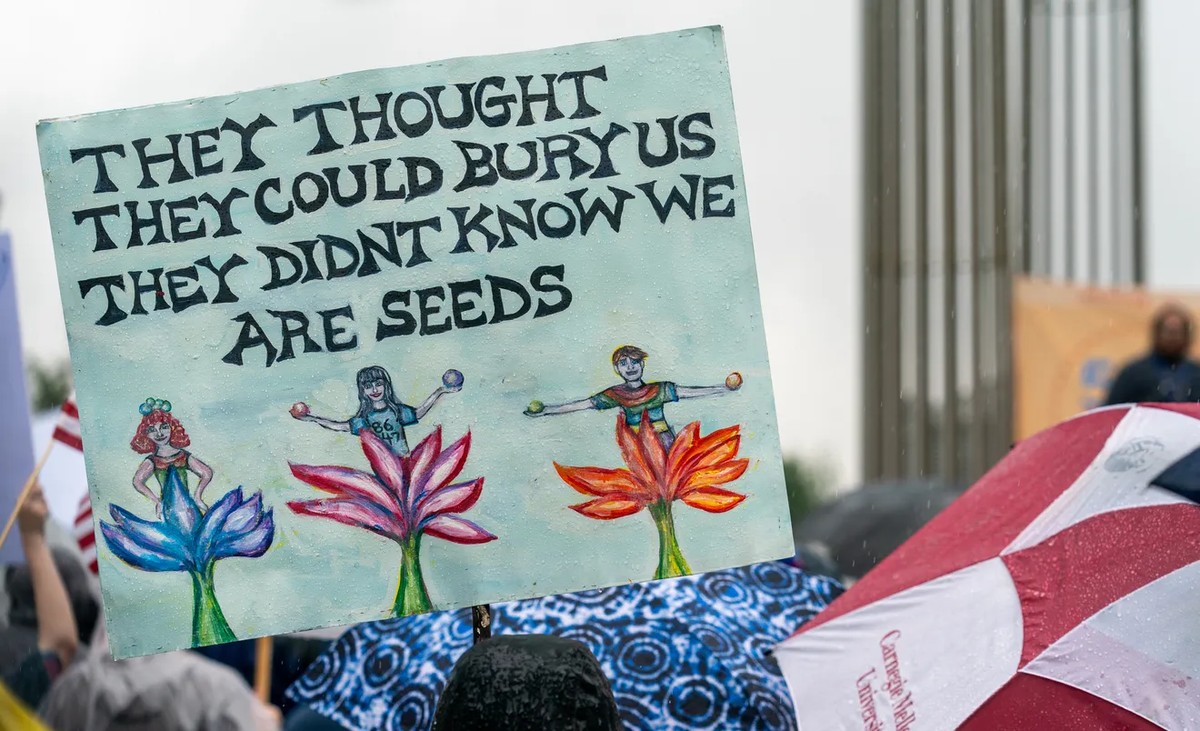 THEY THOUGHT
THEY COULD BURY US
THEY DIDNT KNOW WE
ARE SEEDS
86
47
Carnegie Mellon
University